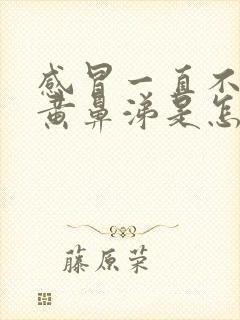 感冒一直不
黄鼻涕是怎
藤原荣